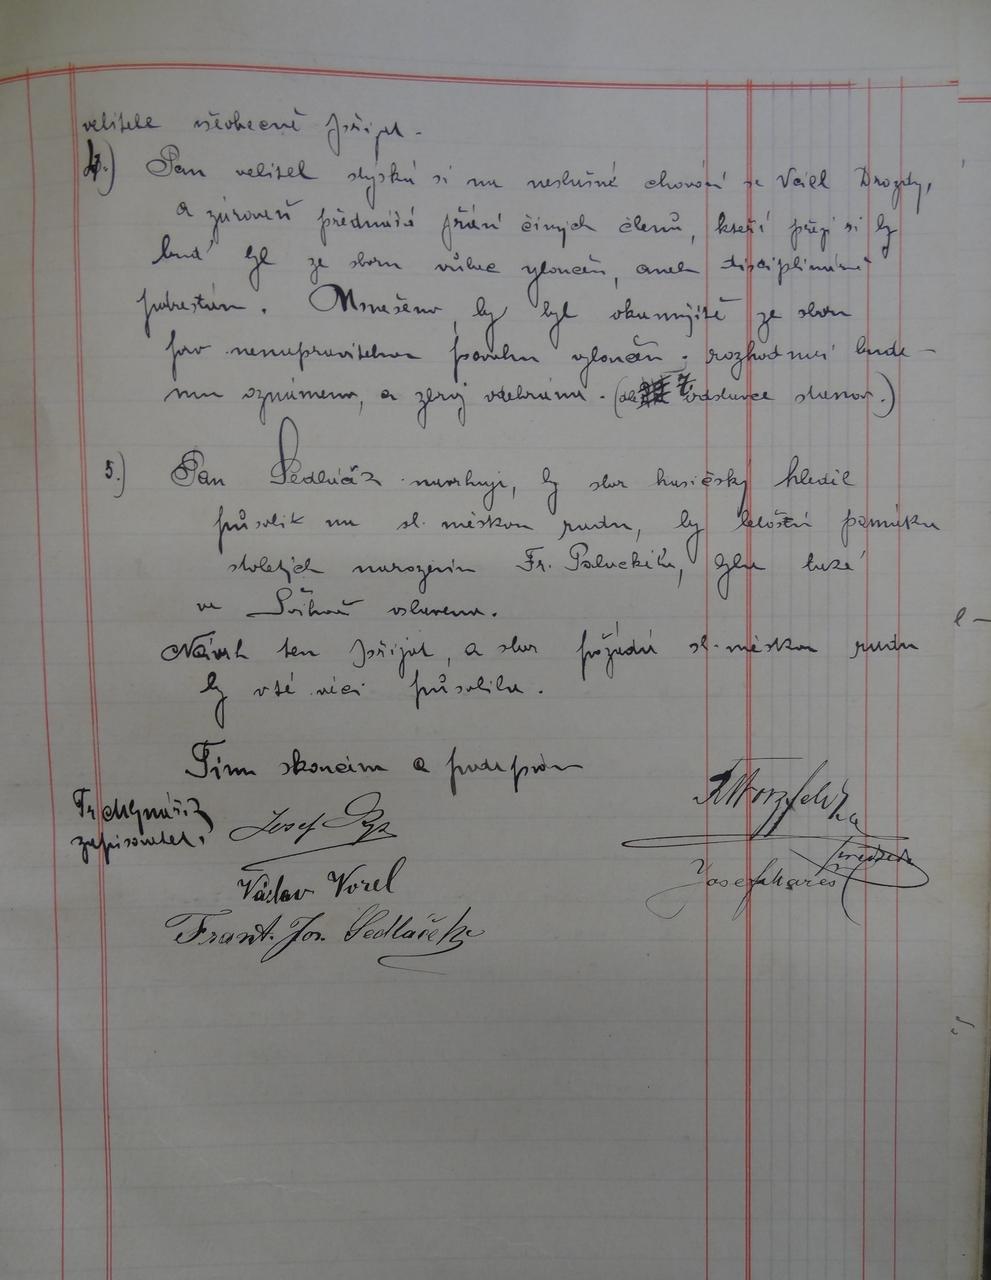 velitele všeobecně přijat.
4.) Pan velitel stýská si na neslušné chování se Václ Drozdy,
a zároveň přednáší přání činých členů, kteří přejí si by
buď byl ze sboru vůbec vyloučen, aneb disciplinárně
potrestán. Usneseno, by byl okamžitě ze sboru
pro nenapravitelnou povahu vyloučen. rozhodnutí bude
mu oznámeno, a zbroj odebrána. (dle 7. odstavce stanov.)
5.) Pan Sedláček navrhuje, by sbor hasičský hleděl
působit na sl. městkou radu, by letoštní památka
stoletých narozenin Fr. Palackého, byla též
ve oslavena.
Návrh ten přijat, a sbor požádá sl. městkou radu
by v té věci působila.
Tím skončeno a podepsáno
Fr. Mlynařík
zapisovatel.
Josef
Václav Vorel
Frant. Jos. Sedláček
předseda
Josef Mareš